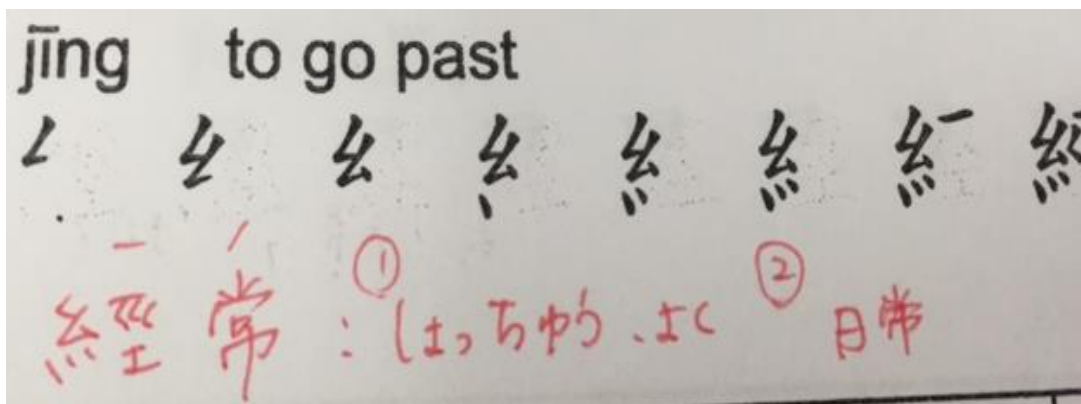 jīng to go past
ˉ ˊ
經常：①しょっちゅう、よく ②日常